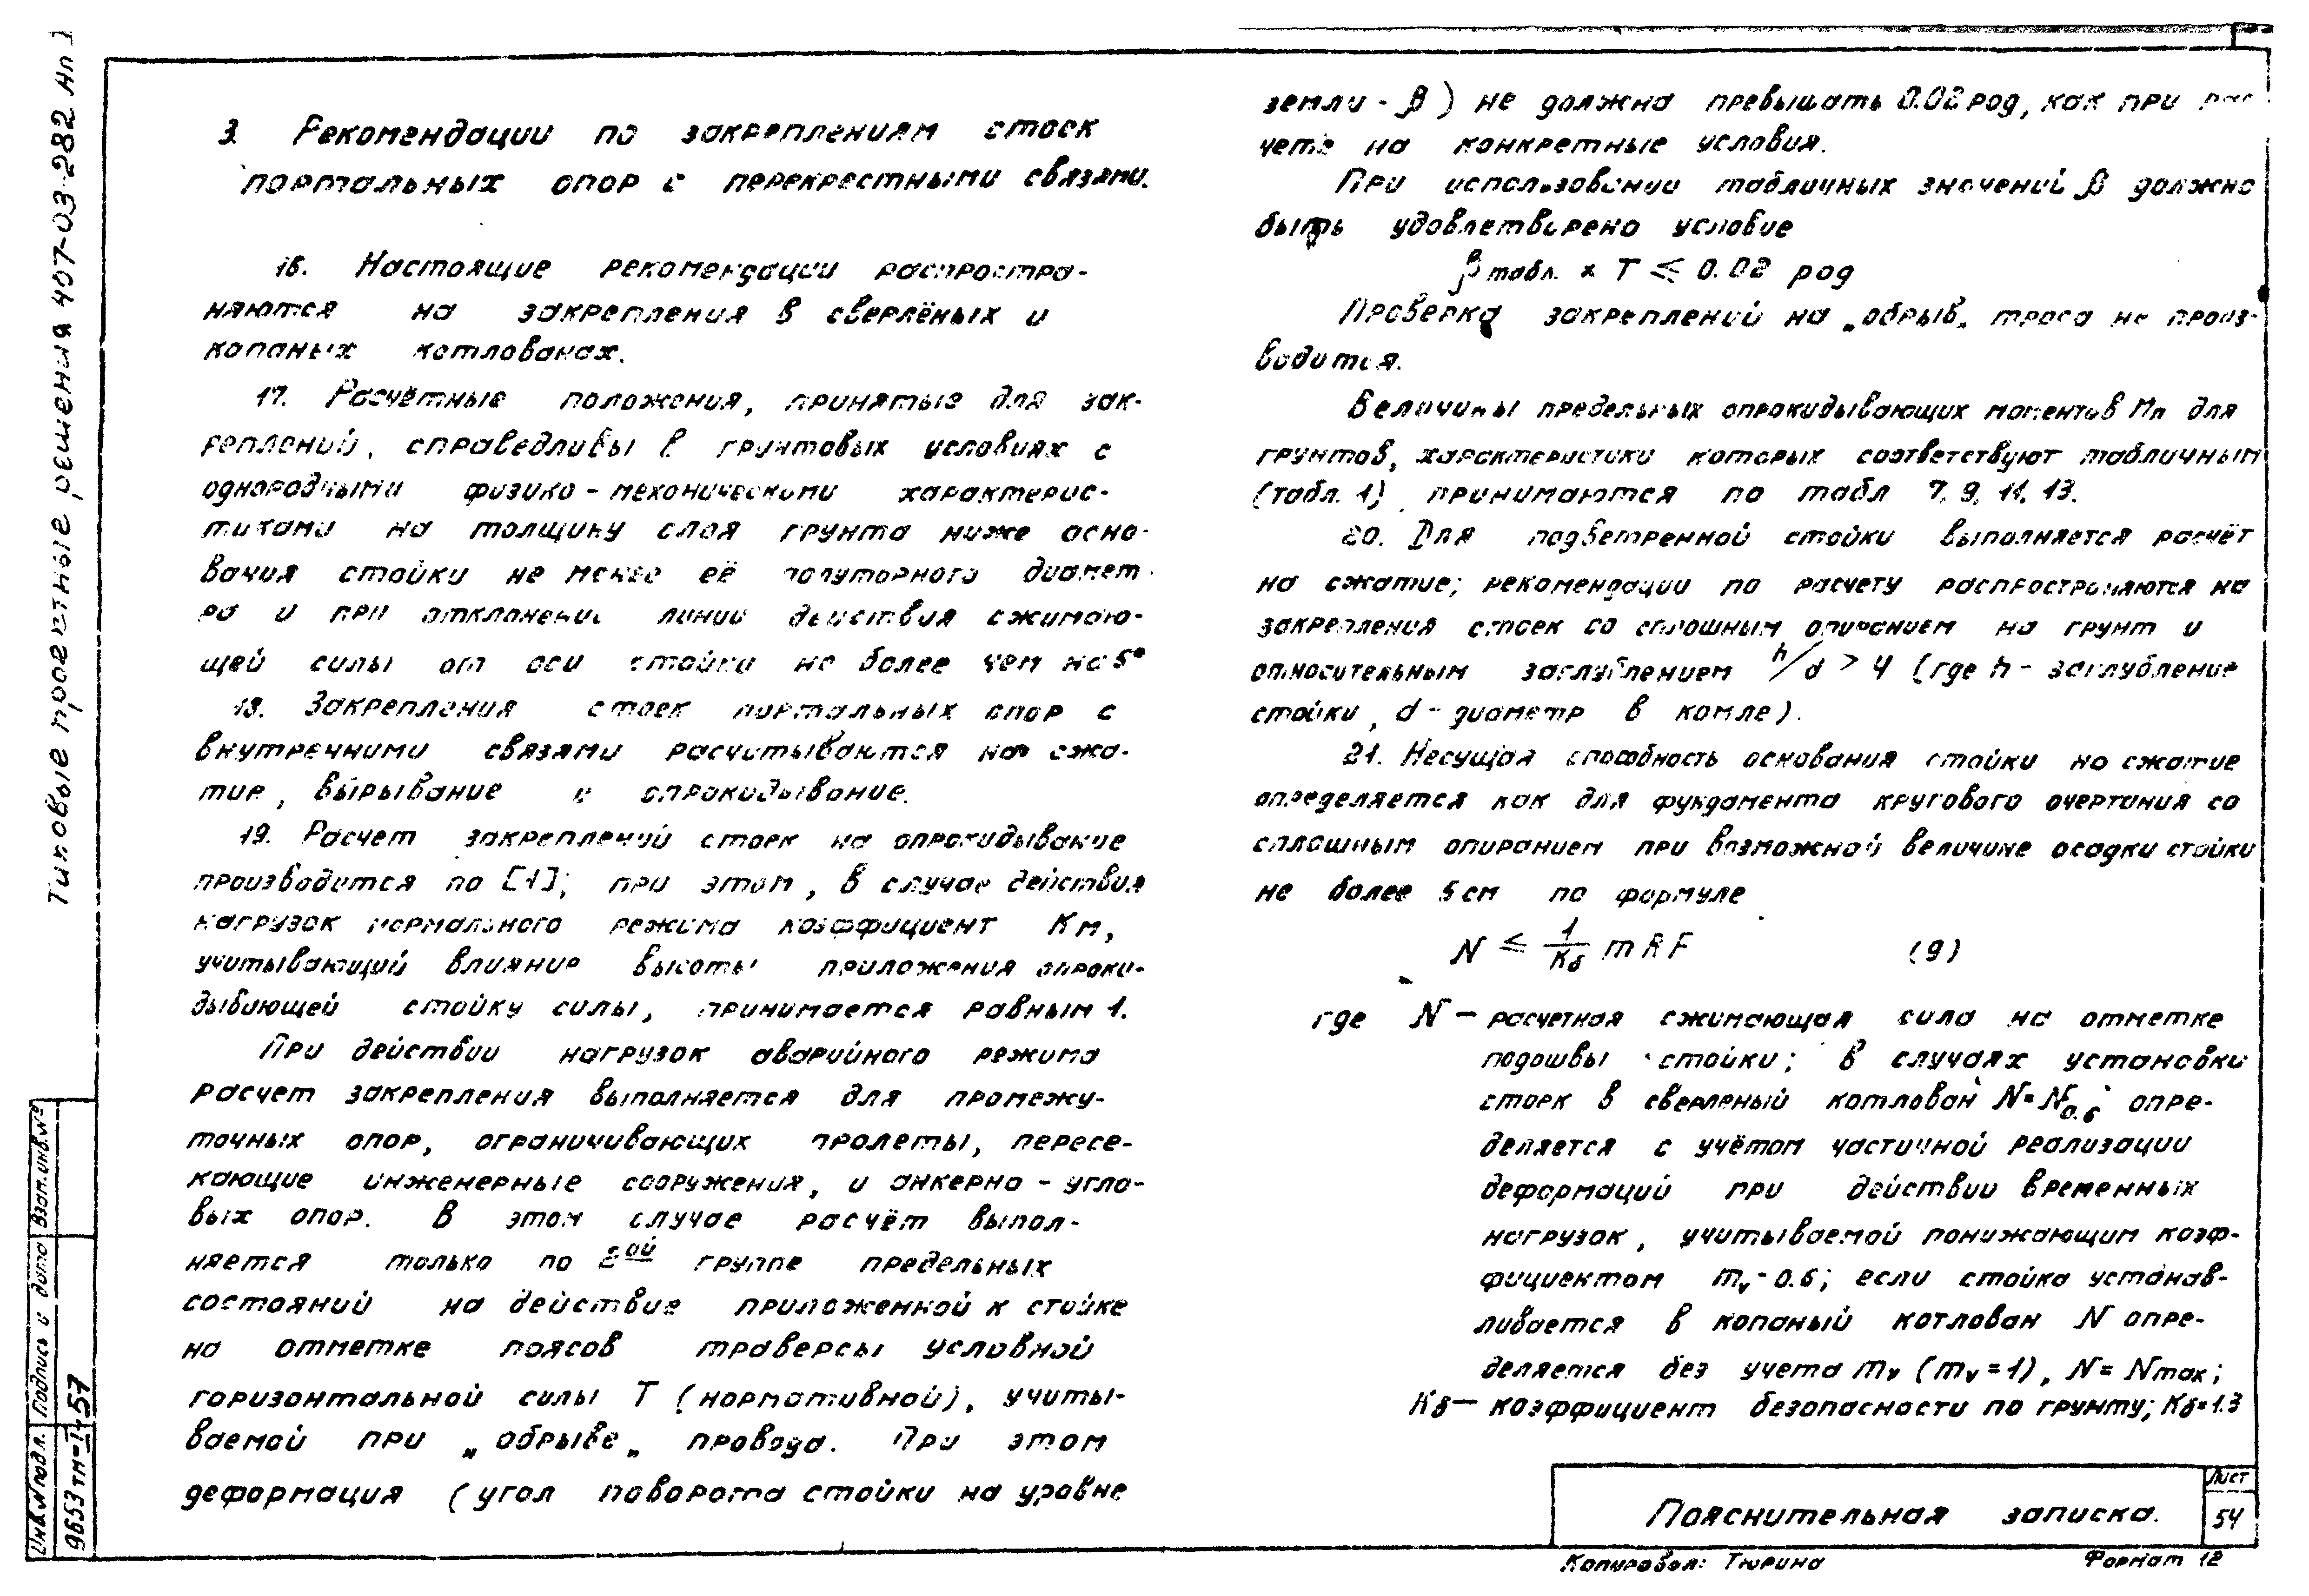 Типовые проектные решения 407-03-282 Ал 1
3. Рекомендации по закреплениям стоек
портальных опор с перекрестными связями.
16. Настоящие рекомендации распростра-
няются на закрепления в сверлёных и
копаных котлованах.
17. Расчётные положения, принятые для зак-
реплений, справедливы в грунтовых условиях с
однородными физико-механическими характерис-
тиками на толщину слоя грунта ниже осно-
вания стойки не менее её полуторного диамет-
ра и при отклонении линии действия сжимаю-
щей силы от оси стойки не более чем на 5°
18. Закрепления стоек портальных опор с
внутренними связями расчитываются на сжа-
тие, вырывание и опрокидывание.
19. Расчет закреплений стоек на опрокидывание
производится по [1]; при этом, в случае действия
нагрузок нормального режима коэффициент Kм,
учитывающий влияние высоты приложения опроки-
дывающей стойку силы, принимается равным 1.
При действии нагрузок аварийного режима
расчет закрепления выполняется для промежу-
точных опор, ограничивающих пролеты, пересе-
кающие инженерные сооружения, и анкерно-угло-
вых опор. В этом случае расчёт выпол-
няется только по 2ой группе предельных
состояний на действие приложенной к стойке
на отметке поясов траверсы условной
горизонтальной силы T (нормативной), учиты-
ваемой при „обрыве„ провода. При этом
деформация (угол поворота стойки на уровне
земли - β) не должна превышать 0.02 рад, как при рас-
чете на конкретные условия.
При использовании табличных значений β должно
быть удовлетворено условие
β табл. × T ≤ 0.02 рад
Проверка закреплений на „обрыв„ троса не произ-
водится.
Величины предельных опрокидывающих моментов Mп для
грунтов, характеристики которых соответствуют табличным
(табл. 1) принимаются по табл 7, 9, 11, 13.
20. Для подветренной стойки выполняется расчёт
на сжатие; рекомендации по расчету распространяются на
закрепления стоек со сплошным опиранием на грунт и
относительным заглублением h/d > 4 (где h - заглубление
стойки, d - диаметр в комле).
21. Несущая способность основания стойки на сжатие
определяется как для фундамента кругового очертания со
сплошным опиранием при возможной величине осадки стойки
не более 5 см по формуле
N ≤ 1/Kб m R F (9)
где N — расчетная сжимающая сила на отметке
подошвы стойки; в случаях установки
стоек в сверленый котлован N=N0.6 опре-
деляется с учётом частичной реализации
деформаций при действии временных
нагрузок, учитываемой понижающим коэф-
фициентом mv-0.6; если стойка устанав-
ливается в копаный котлован N опре-
деляется без учета mv (mv=1), N=Nmax;
Kб — коэффициент безопасности по грунту; Kб=1.3
Пояснительная записка.
Лист
54
Копировал: Тюрина Формат 12
Взам.инв.№
Подпись и дата
Инв.№ подл.
9653тм-1457